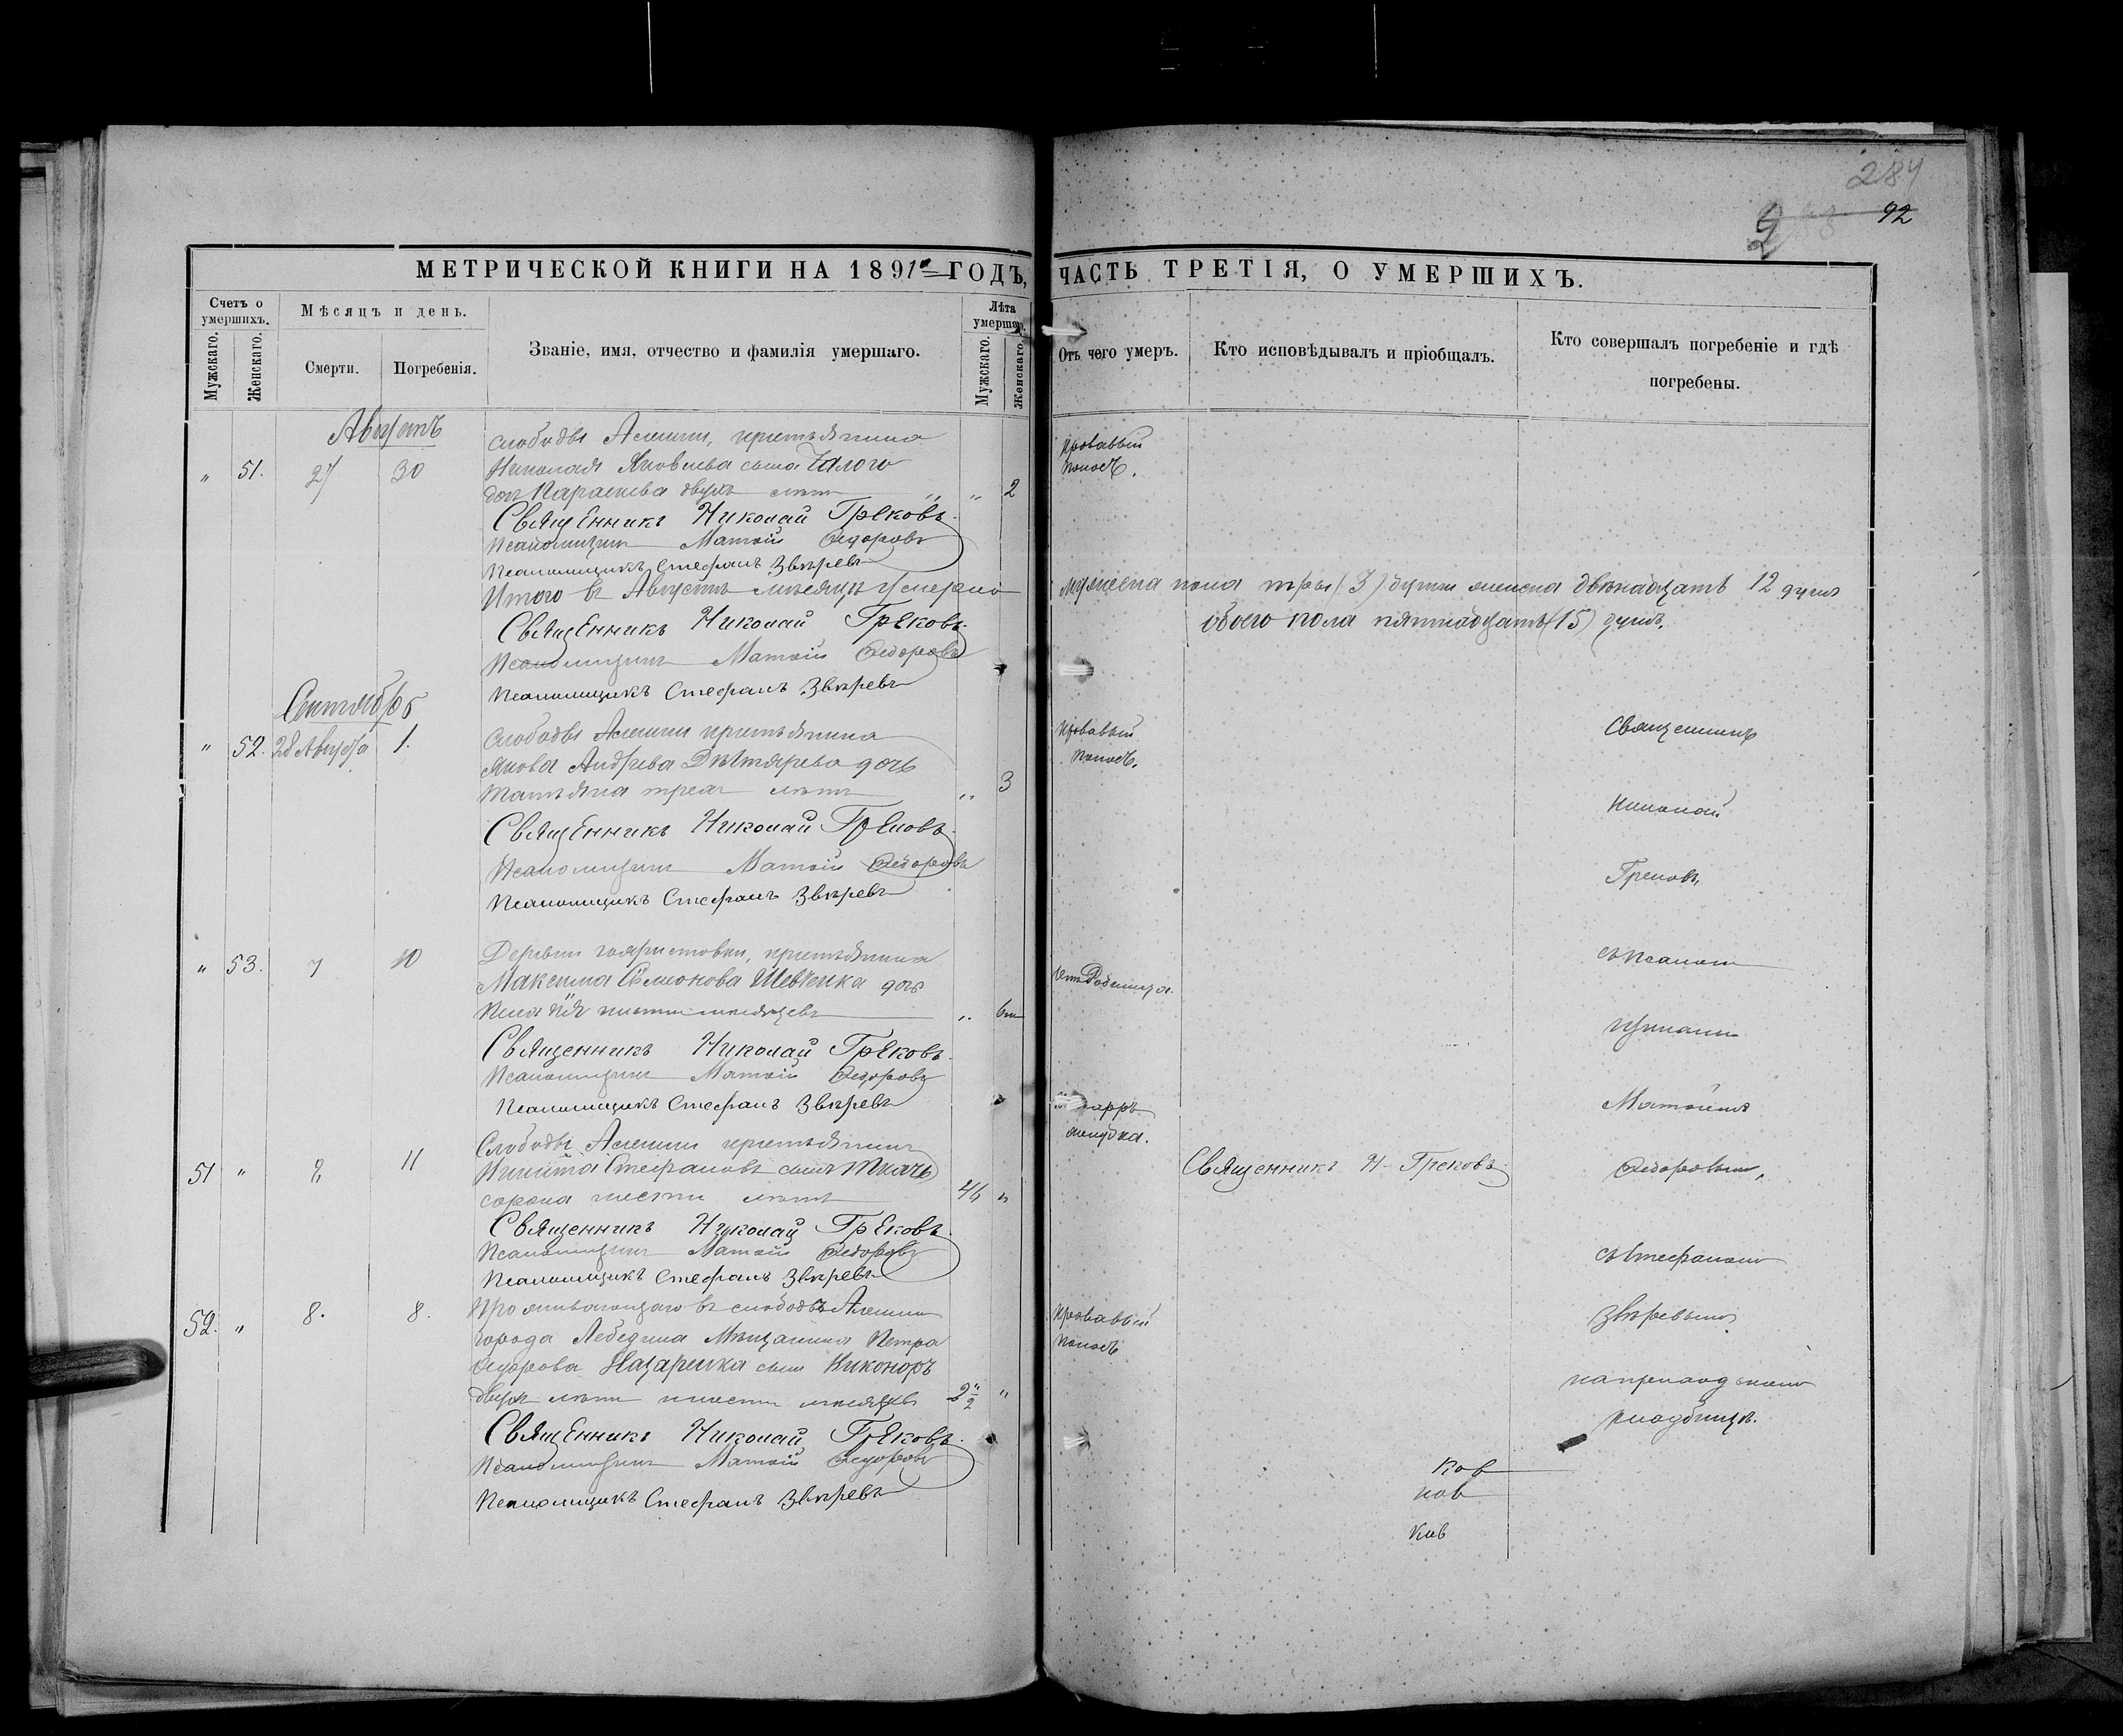 284
92
МЕТРИЧЕСКОЙ КНИГИ НА 1891й ГОДЪ,
ЧАСТЬ ТРЕТІЯ, О УМЕРШИХЪ.
Счетъ о умершихъ.
Мужскаго.
Женскаго.
Мѣсяцъ и день.
Смерти.
Погребенія.
Званіе, имя, отчество и фамилія умершаго.
Лѣта умершаго.
Мужскаго.
Женскаго.
Отъ чего умеръ.
Кто исповѣдывалъ и пріобщалъ.
Кто совершалъ погребеніе и гдѣ погребены.
Августъ
" 51. 27 30
слободы Алешни, крестьянина
Николая Яковлева сына Чалого
дочь Параскева двухъ лѣтъ " 2
Кровавый
поносъ.
Священникъ Николай Грековъ.
Псаломщикъ Матѳій Ѳедоровъ
Псаломщикъ Стефанъ Звѣревъ
Итого въ Августѣ мѣсяцѣ умерло
мужеска пола три (3) души женска двѣнадцать 12 душъ
обоего пола пятнадцать (15) душъ.
Священникъ Николай Грековъ.
Псаломщикъ Матѳій Ѳедоровъ
Псаломщикъ Стефанъ Звѣревъ
Сентябрь
" 52. 28 Августа 1.
слободы Алешни крестьянина
Якова Андрева Дѣхтярева дочь
Татьяна трехъ лѣтъ " 3
Кровавый
поносъ.
Священникъ Николай Грековъ.
Псаломщикъ Матѳій Ѳедоровъ
Псаломщикъ Стефанъ Звѣревъ
" 53. 7 10
Деревни крестьянина
Максима Семіонова Шевченка дочь
шести мѣсяцевъ " 6м
Отъ Родимца.
Священникъ Николай Грековъ.
Псаломщикъ Матѳій Ѳедоровъ
Псаломщикъ Стефанъ Звѣревъ
51 " 8 11
Слободы Алешни крестьянинъ
Никита Стефановъ сынъ Ткачь
сорока шести лѣтъ 46 "
Катарръ
желудка.
Священникъ Н. Грековъ
Священникъ Николай Грековъ.
Псаломщикъ Матѳій Ѳедоровъ
Псаломщикъ Стефанъ Звѣревъ
52. " 8. 8.
Проживающаго въ слободѣ Алешни
города Лебедина Мѣщанина Петра
Ѳедорова Назаренка сынъ Никоноръ
двухъ лѣтъ шести мѣсяцевъ "
Кровавый
поносъ
Священникъ Николай Грековъ.
Псаломщикъ Матѳій Ѳедоровъ
Псаломщикъ Стефанъ Звѣревъ
Священникъ
Николай
Грековъ,
съ псалом
щиками
Матѳіемъ
Ѳедоровымъ,
Стефаномъ
Звѣревымъ
на приходскомъ
кладбищѣ.
ков
ков
ков